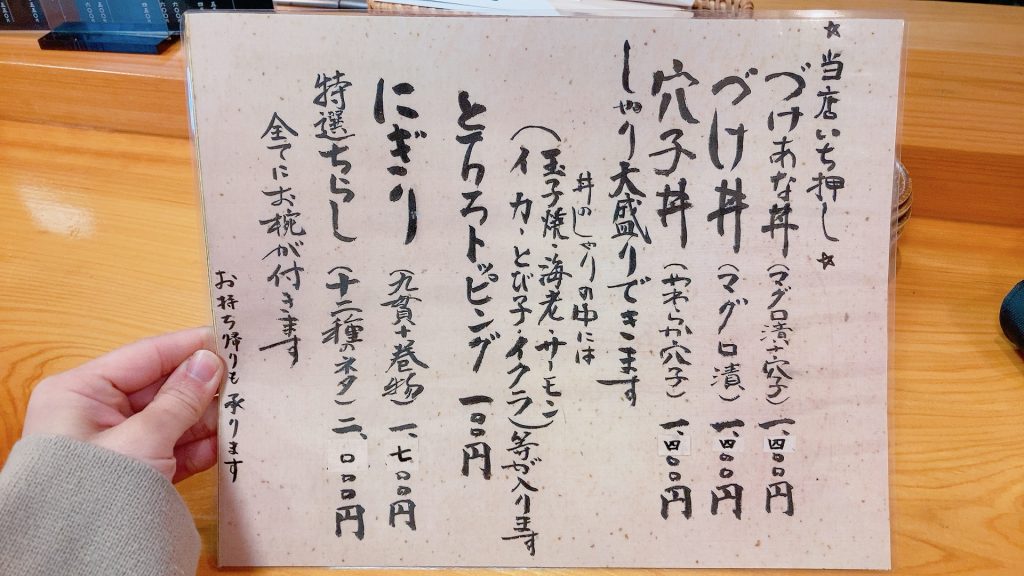 ☆当店いち押し☆
づけあな丼（マグロ漬+穴子）一、四〇〇円
づけ丼（マグロ漬）一、四〇〇円
穴子丼（やわらか穴子）一、四〇〇円
しゃり大盛りできます
丼のしゃりの中には
（玉子焼・海老・サーモン
イカ・とび子・イクラ）等が入ります
とろろトッピング 一〇〇円
にぎり（九貫+巻物）一、七〇〇円
特選ちらし（十二種のネタ）二、〇〇〇円
全てにお椀が付きます
お持ち帰りも承ります